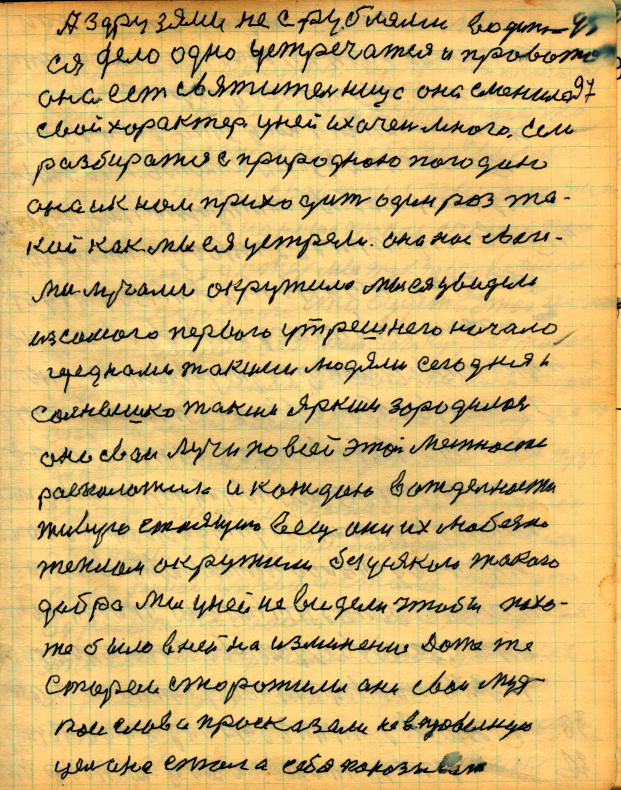 А з друзями не с рублями водит-
ся дело одно устречатся и провожат
она ест святителница она сменила 97
свой характер у ней их очен много. Если
разбиратся с природною погодаю
она и к нам приходит один роз та-
кей как мы ся устрели. она нас сваи-
ми лучами окружила мы ся увидели
из самого первого утрешнего начало
перед нами такими людями сегодня и
солнышко таким ярким зародилас
оно сваи лучи по всей этой местности
расположила и каждаю в отделности
живую стаящую вещ они их любезно
теплом окружили без усякого такого
добра мы у ней не видели чтобы похо-
же было в ней на изминение даже те
старые сторожили ани сваи муд-
рые слова просказали
цэл она стала себя показыват